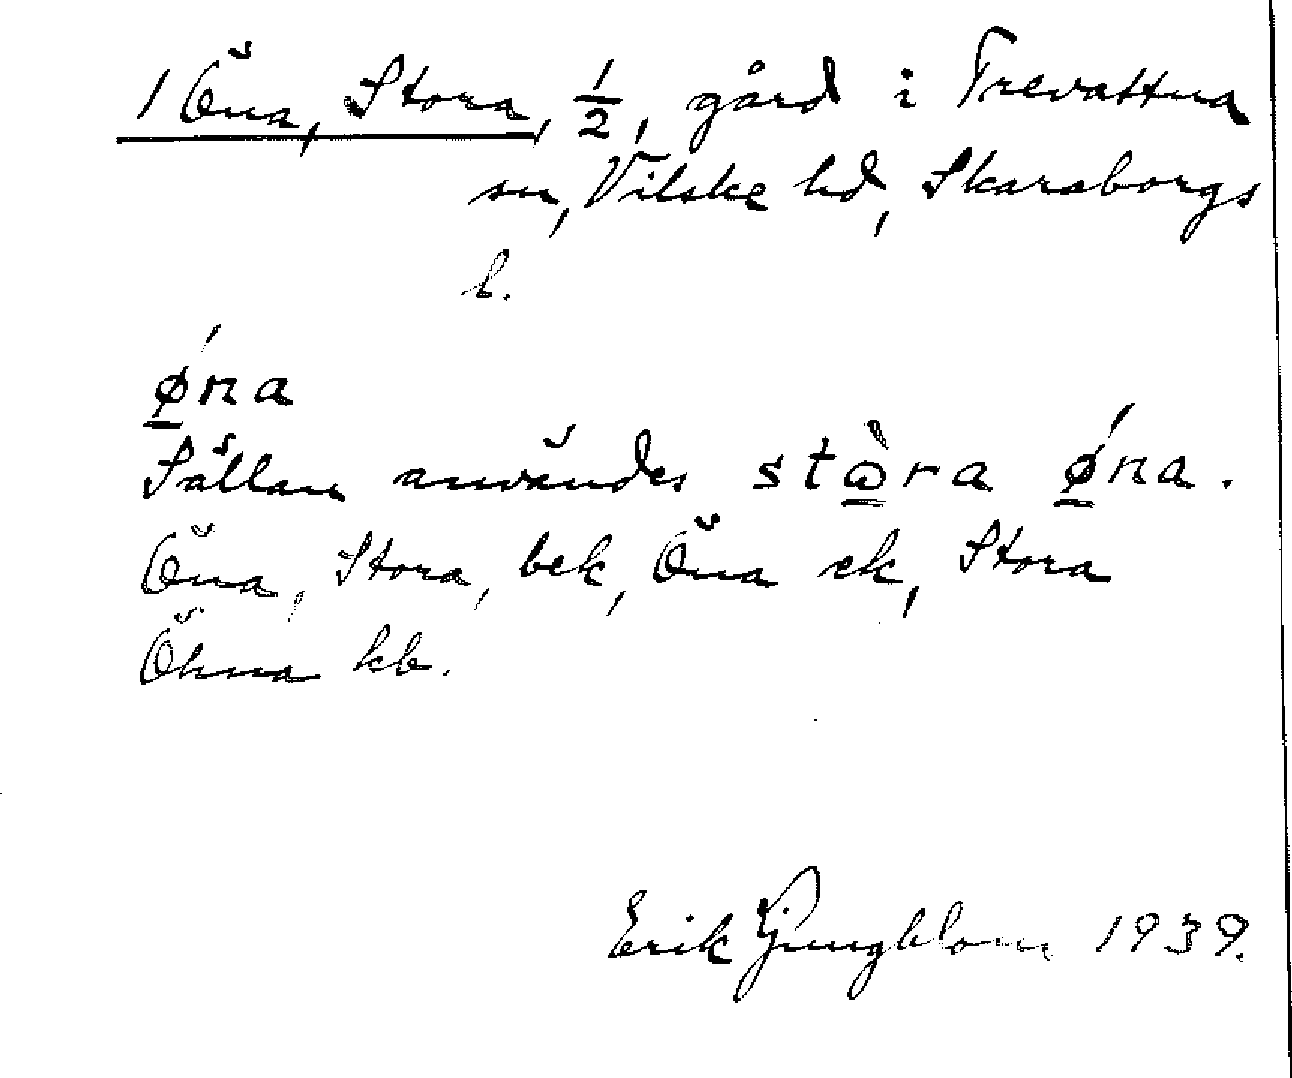 1 Öna, Stora, 1/2, gård i Trevattna
sn, Vilske hd, Skaraborgs
l.
ǿ̲na
Sällan användes stὼ̲ra ǿ̲na.
Öna, Stora, bek, Öna ek, Stora
Öhna kb.
Erik Ljungblom 1939.